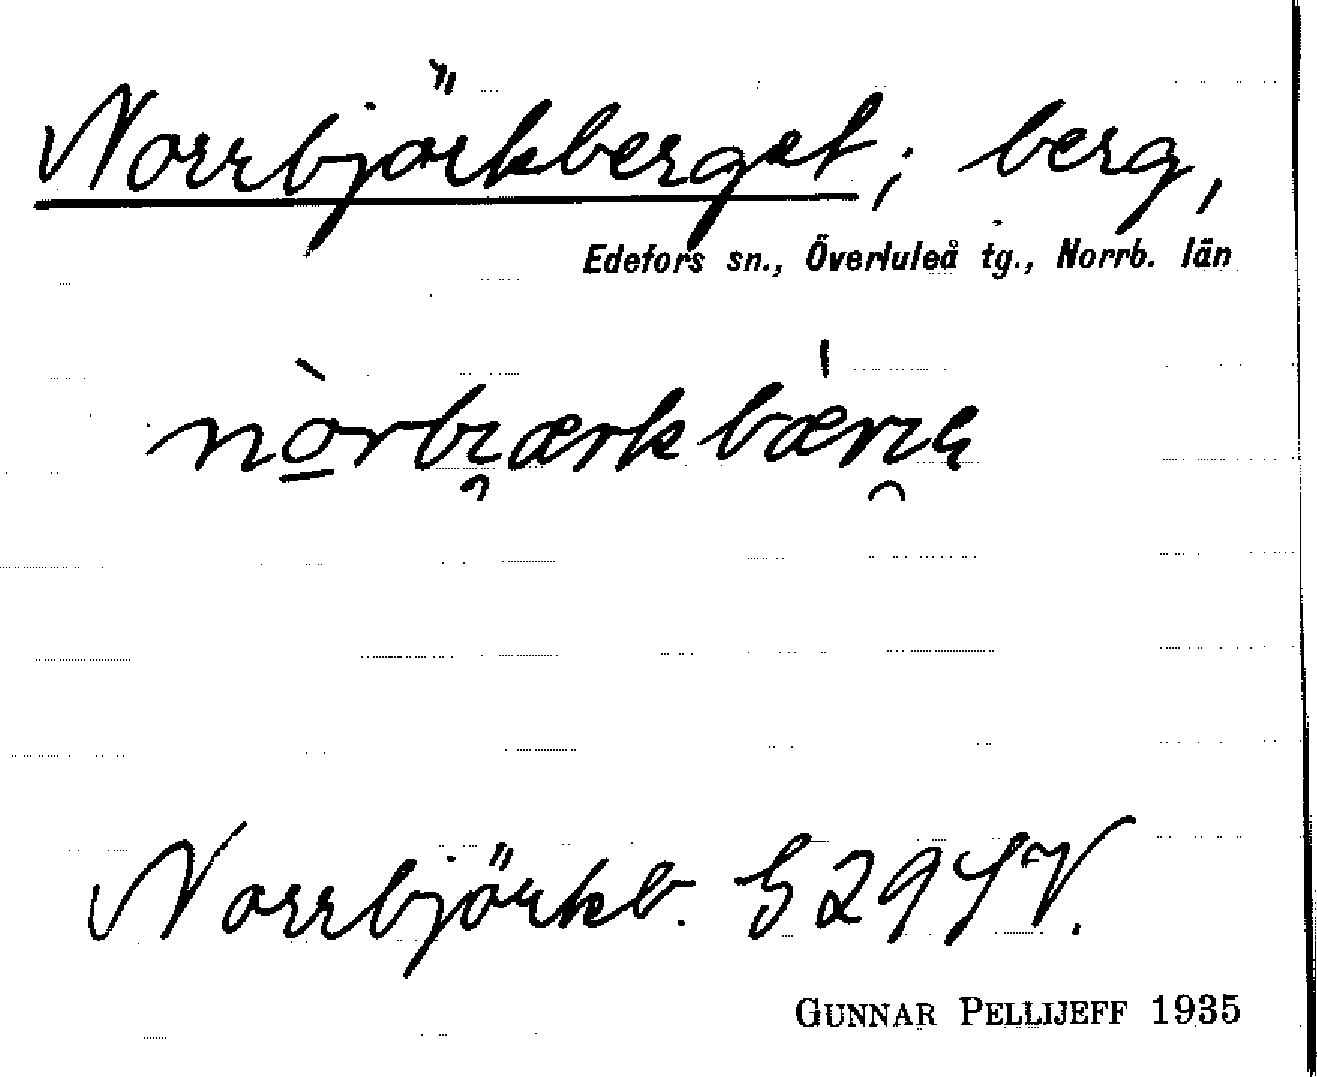 Norrbjörkberget; berg,
Edefors sn., Överluleå tg., Norrb. län
Norrbjörkb. G 29 SV.
GUNNAR PELLIJEFF 1935